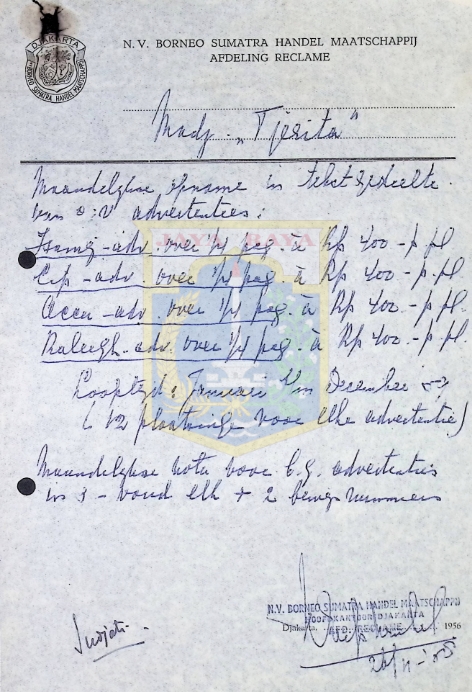 DJAKARTA
BORNEO SUMATRA HANDEL MAATSCHAPPIJ
N. V. BORNEO SUMATRA HANDEL MAATSCHAPPIJ
AFDELING RECLAME
Madj. „Tjerita"
Maandelijkse opname in tekstgedeelte
van o.v. advertenties:
JAYA RAYA
adv. over 1/1 pag. à Rp 400.- p. pl.
adv. over 1/1 pag. à Rp 400.- p. pl.
Accu - adv. over 1/1 pag. à Rp 400.- p. pl.
Raleigh - adv. over 1/1 pag. à Rp 400.- p. pl.
Looptijd: Januari t/m December
(12 plaatsingen voor elke advertentie)
Maandelijkse nota voor b.g. advertenties
in 3-voud elk + 2 bewijsnummers
N.V. BORNEO SUMATRA HANDEL MAATSCHAPPIJ
HOOFDKANTOOR DJAKARTA
Djakarta, AFD. RECLAME 1956